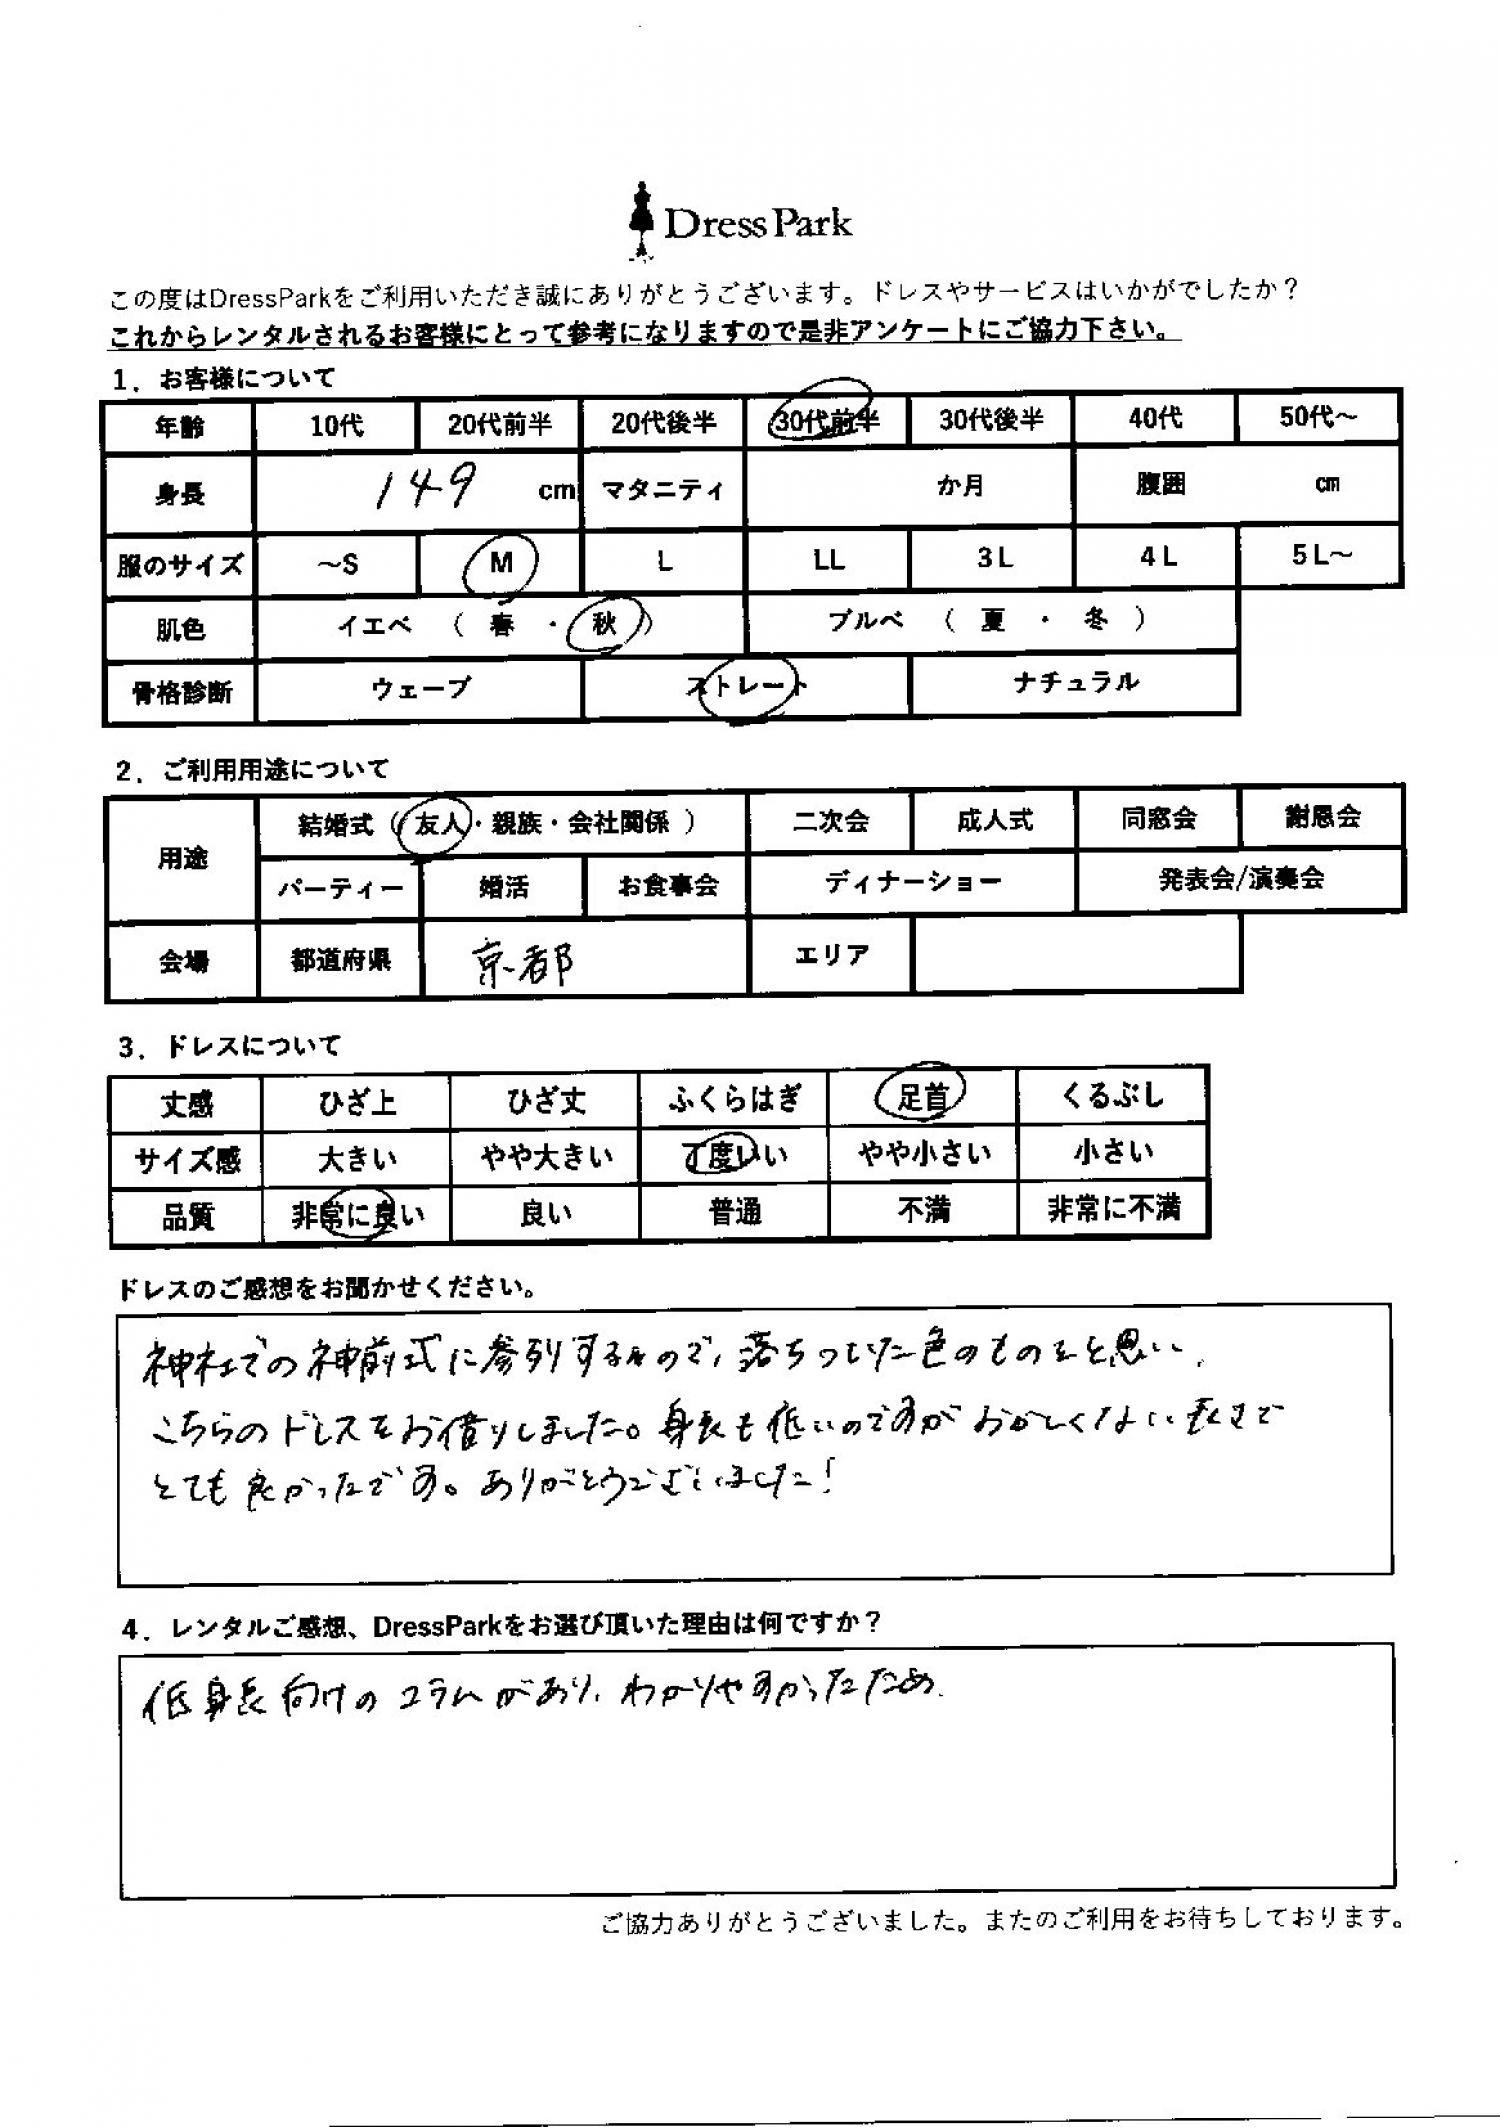 Dress Park
この度はDressParkをご利用いただき誠にありがとうございます。ドレスやサービスはいかがでしたか？
これからレンタルされるお客様にとって参考になりますので是非アンケートにご協力下さい。
1．お客様について
年齢 10代 20代前半 20代後半 30代前半 30代後半 40代 50代～
身長 149 cm マタニティ か月 腹囲 cm
服のサイズ ～S M L LL 3L 4L 5L～
肌色 イエベ （ 春 ・ 秋 ） ブルベ （ 夏 ・ 冬 ）
骨格診断 ウェーブ ストレート ナチュラル
2．ご利用用途について
用途 結婚式（ 友人・親族・会社関係 ） 二次会 成人式 同窓会 謝恩会
パーティー 婚活 お食事会 ディナーショー 発表会/演奏会
会場 都道府県 京都 エリア
3．ドレスについて
丈感 ひざ上 ひざ丈 ふくらはぎ 足首 くるぶし
サイズ感 大きい やや大きい 丁度いい やや小さい 小さい
品質 非常に良い 良い 普通 不満 非常に不満
ドレスのご感想をお聞かせください。
神社での神前式に参列するので、落ちついた色のものをと思い、
こちらのドレスをお借りしました。身長も低いのですがおかしくない長さで
とても良かったです。ありがとうございました！
4．レンタルご感想、DressParkをお選び頂いた理由は何ですか？
低身長向けのコラムがあり、わかりやすかったため。
ご協力ありがとうございました。またのご利用をお待ちしております。